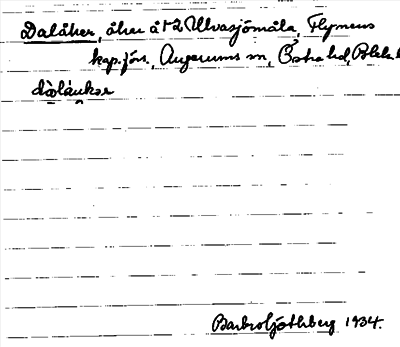 Dalåker, åker å 1⁄2 Ulvasjömåla, Flymens
kap.förs., Augerums sn, Östra hd, Blek.
Barbro Ljothberg 1934.